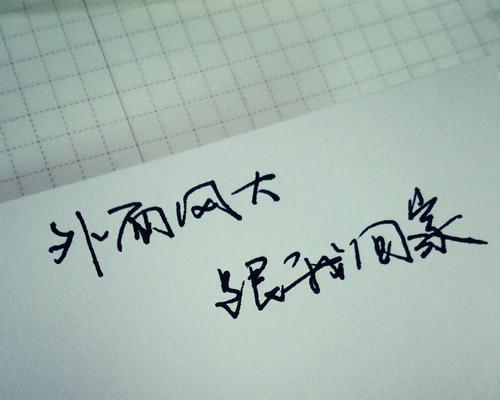 外面风大
跟我回家